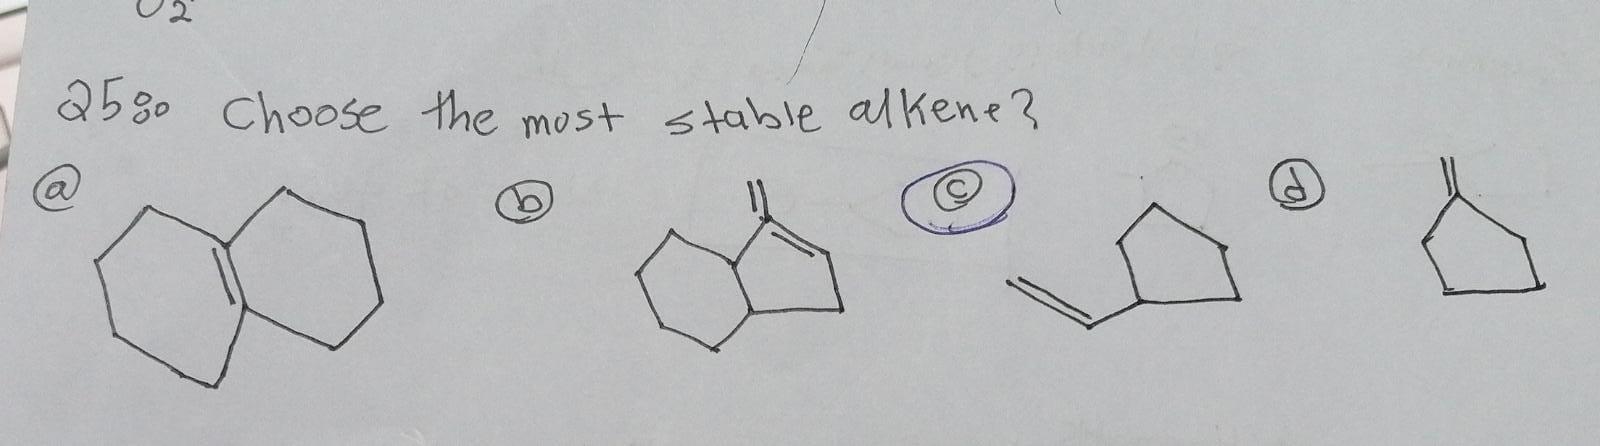 O2
Q5: Choose the most stable alkene?
a b c d